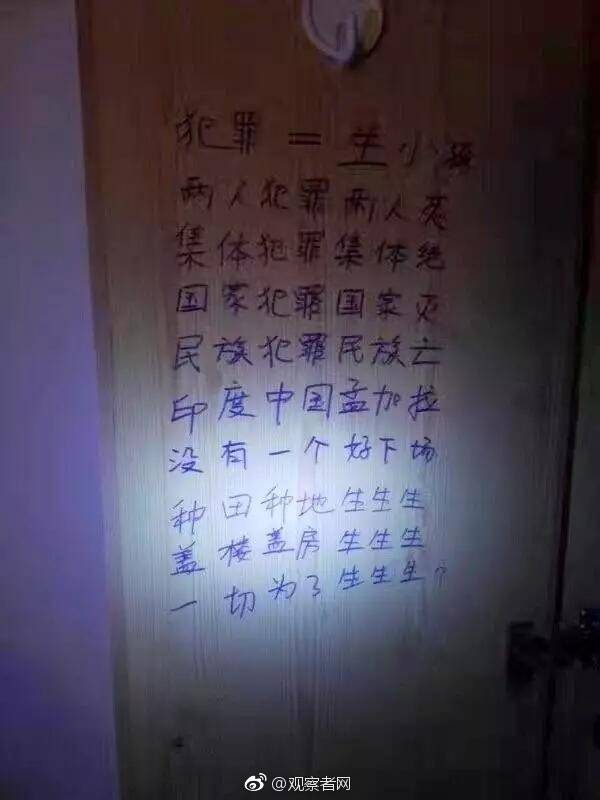 犯罪=生小孩
两人犯罪两人死
集体犯罪集体绝
国家犯罪国家灭
民族犯罪民族亡
印度中国孟加拉
没有一个好下场
种田种地生生生
盖楼盖房生生生
一切为了生生生?
@观察者网